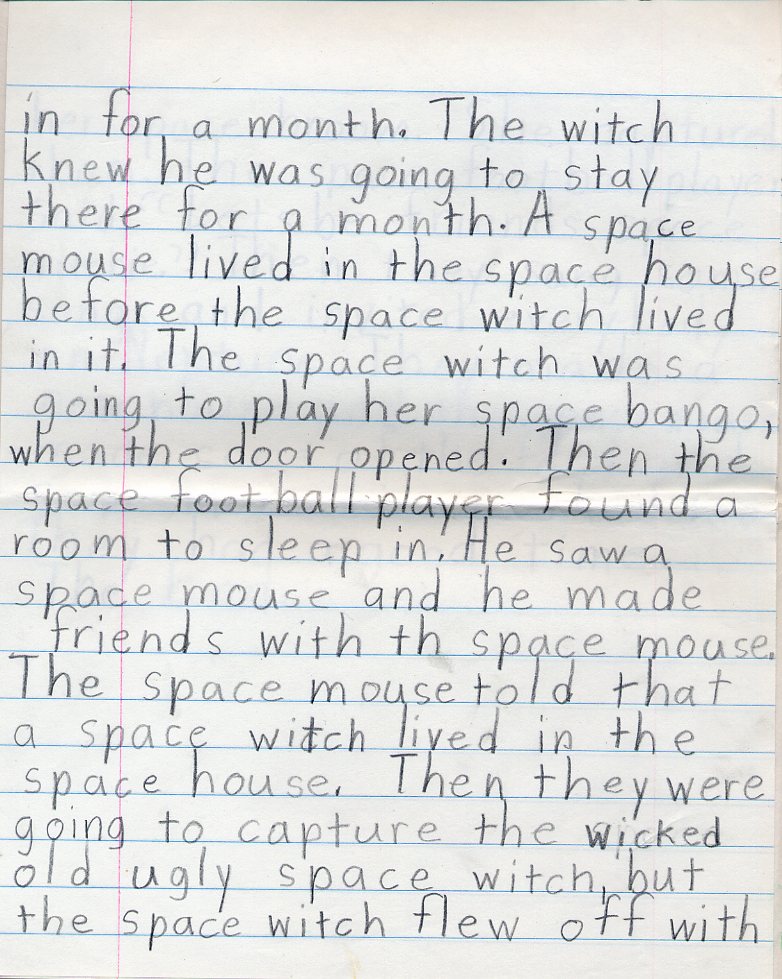 in for a month. The witch
knew he was going to stay
there for a month. A space
mouse lived in the space house
before the space witch lived
in it. The space witch was
going to play her space bango,
when the door opened. Then the
space football player found a
room to sleep in. He saw a
space mouse and he made
friends with th space mouse.
The space mouse told that
a space witch lived in the
space house. Then they were
going to capture the wicked
old ugly space witch, but
the space witch flew off with